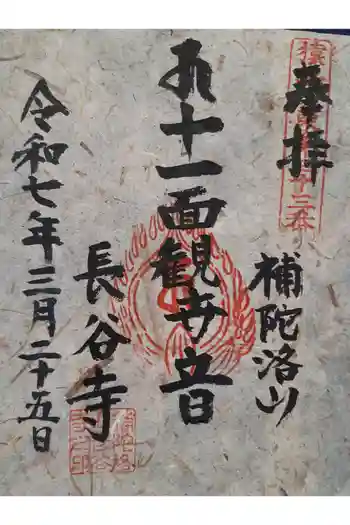 奉拝
補陀洛山
十一面観世音
長谷寺
令和七年三月二十五日